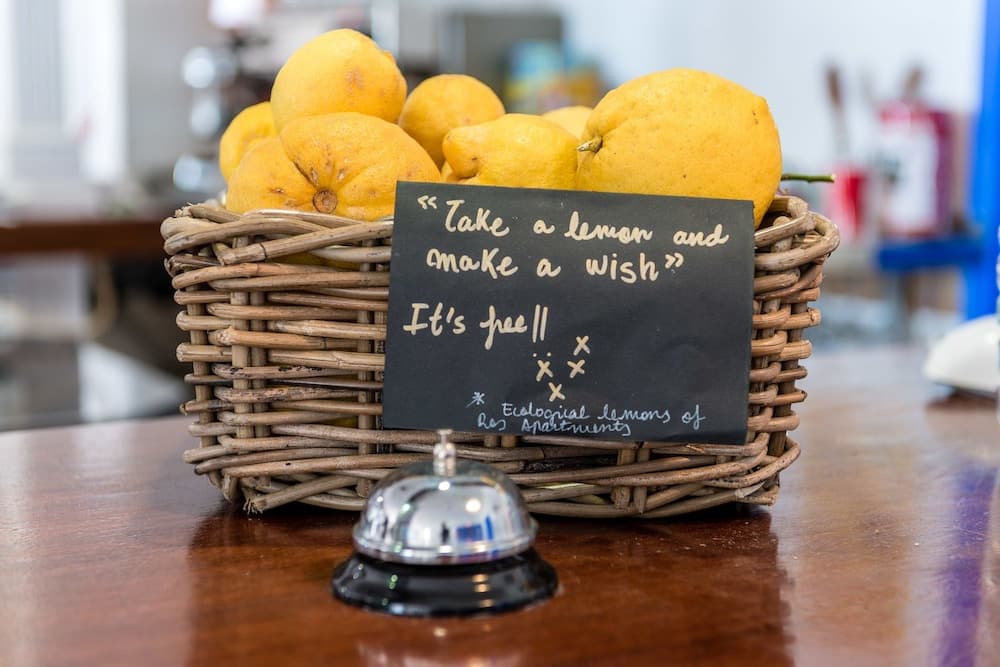 “Take a lemon and
make a wish”
It's free!!
x
x x
x
* Ecological lemons of
Res Apartments